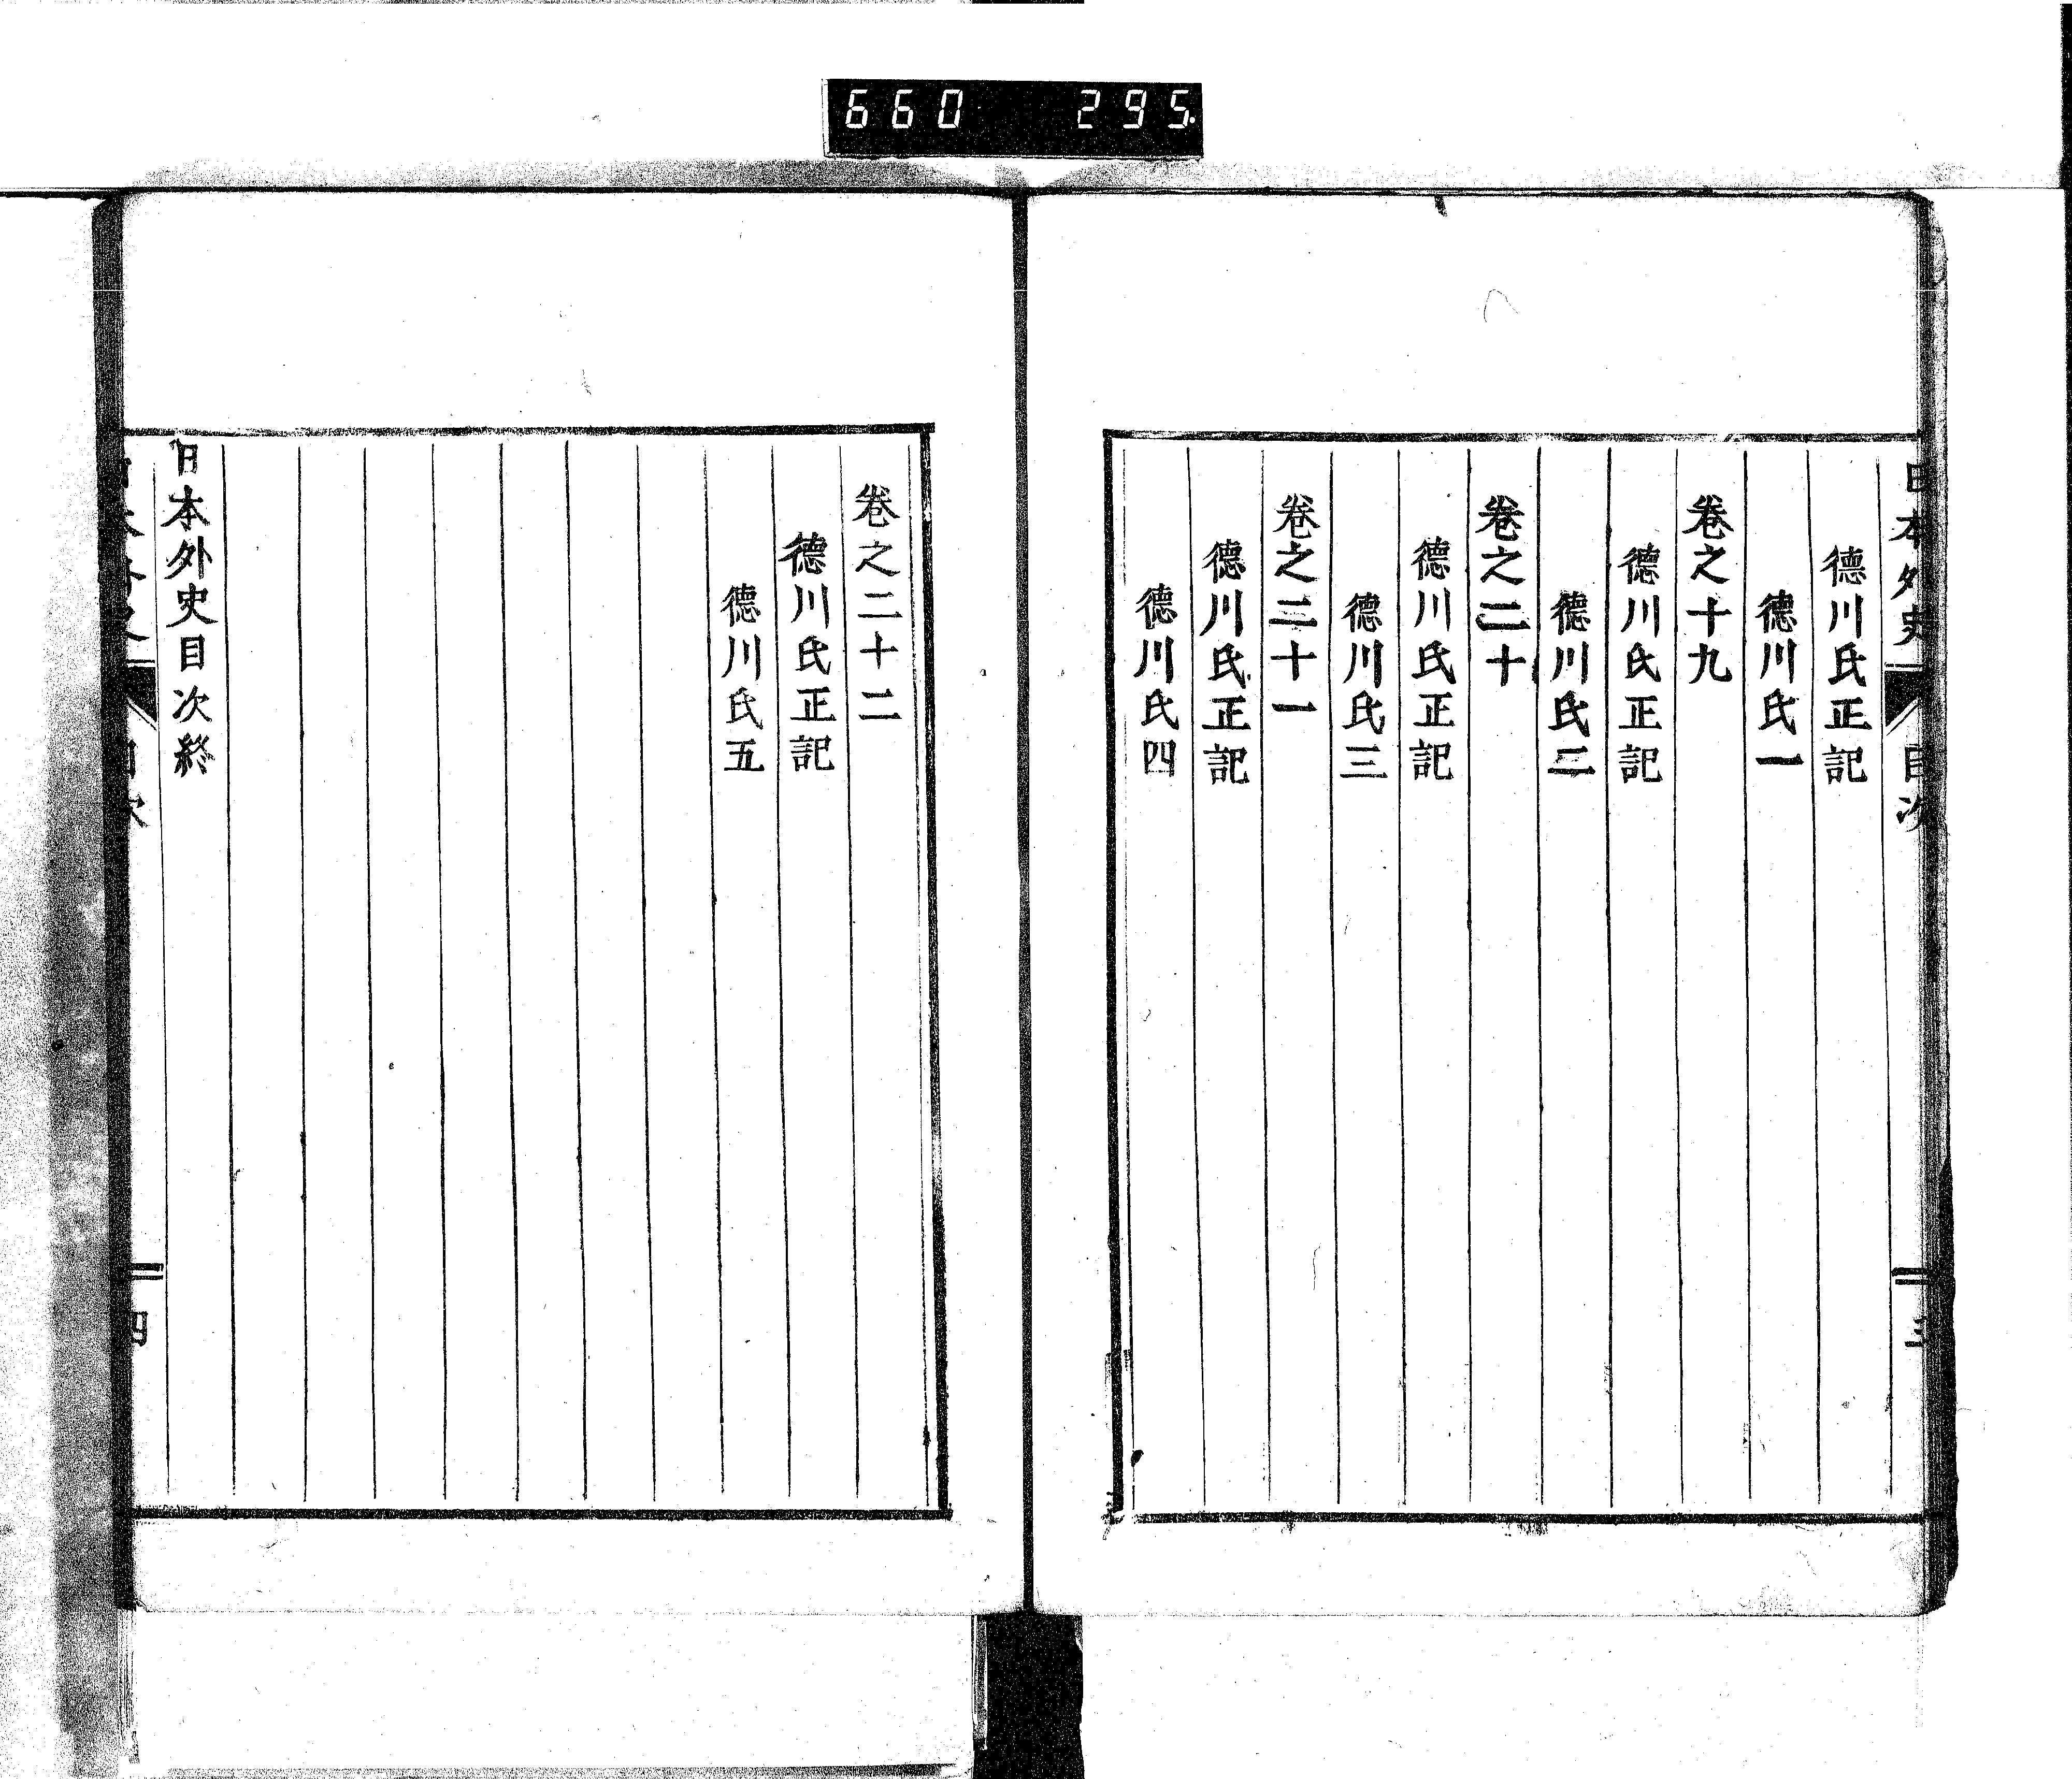 660 295.
日本外史 目次 三
德川氏正記
德川氏一
卷之十九
德川氏正記
德川氏二
卷之二十
德川氏正記
德川氏三
卷之二十一
德川氏正記
德川氏四
卷之二十二
德川氏正記
德川氏五
日本外史目次終